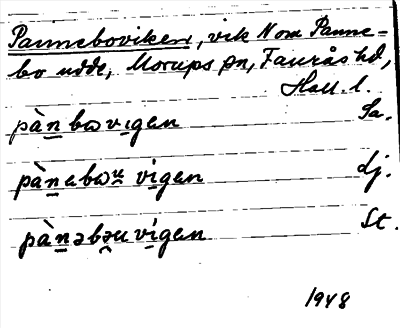 Panneboviken, vik N om Panne-
bo udde, Morups sn, Faurås hd,
Hall. l.
pànbωvigen Sa.
pànabωu vigen dj.
pànəbəuvigen St.
1948